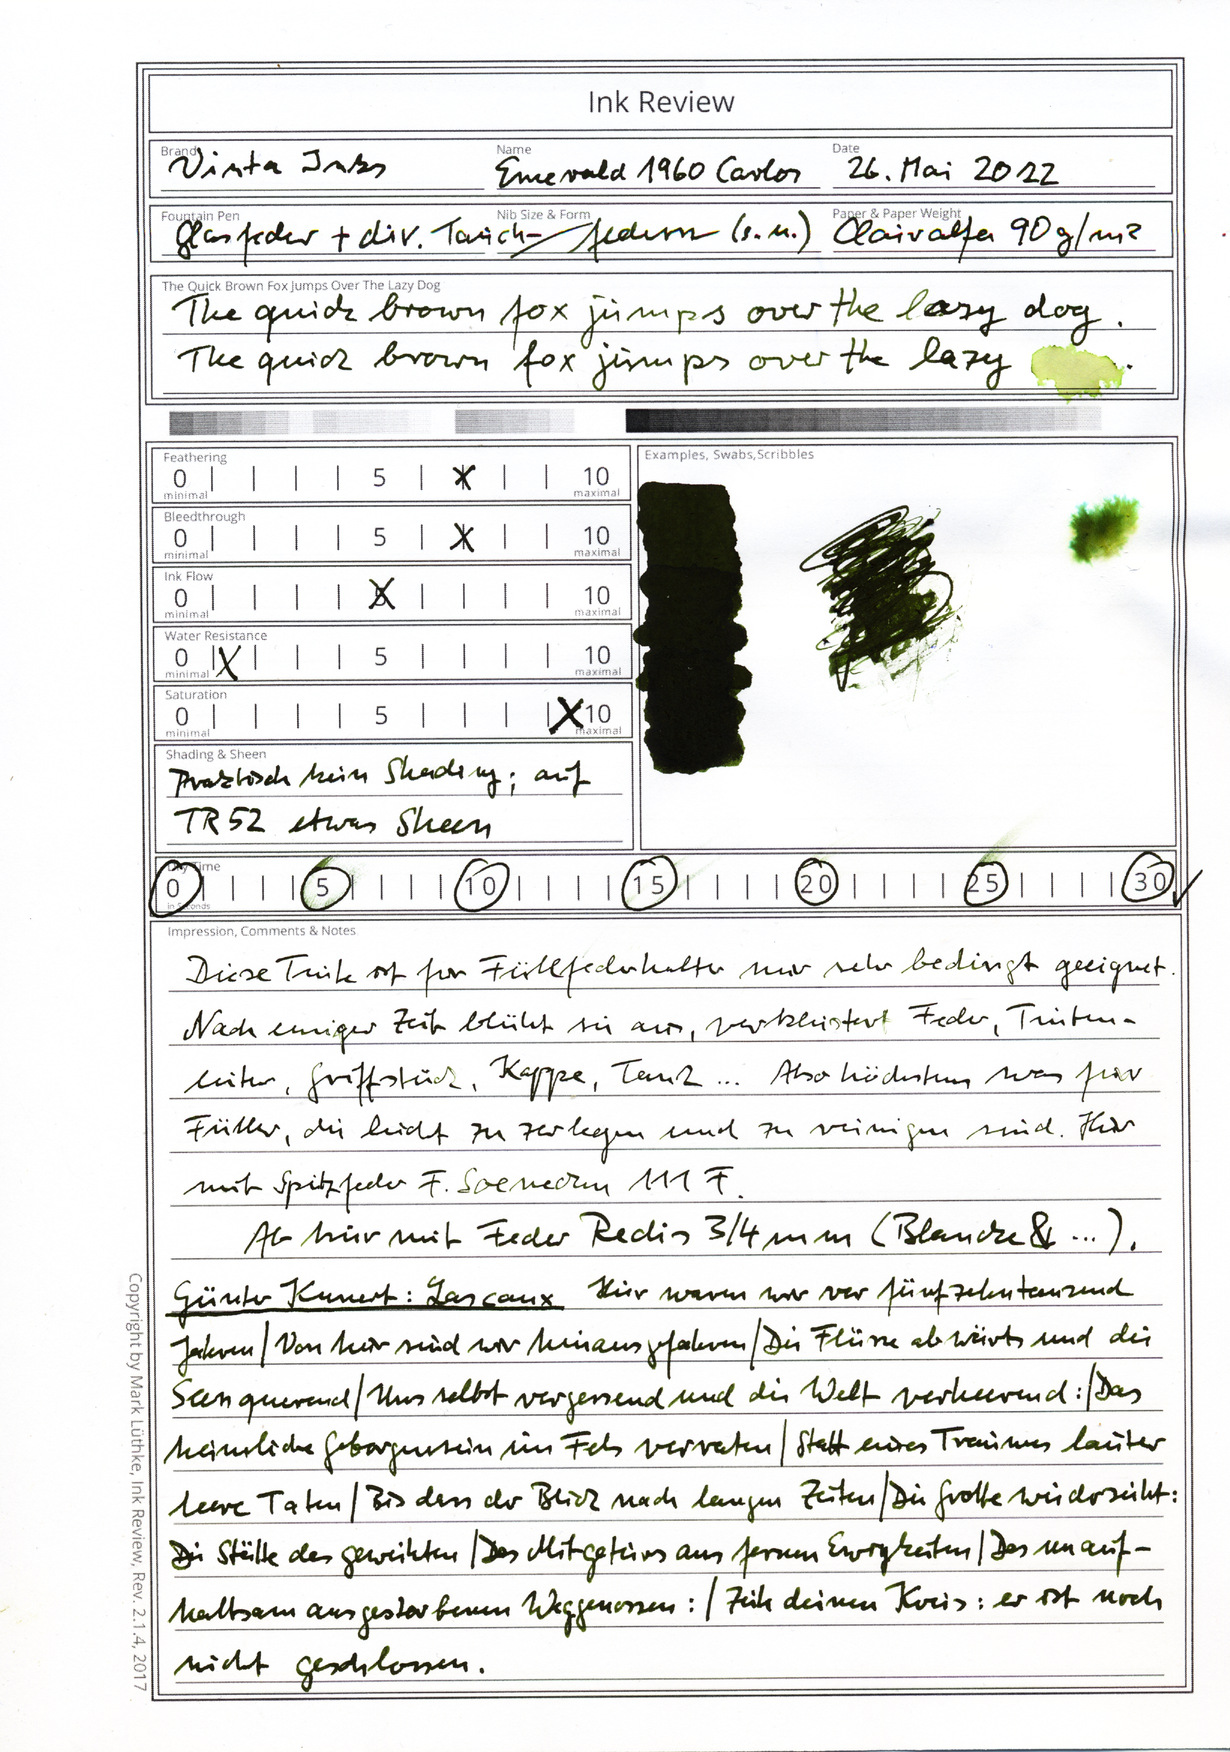 Ink Review
Brand
Vinta Inks
Name
Emerald 1960 Carlos
Date
26. Mai 2022
Fountain Pen
Glasfeder + div. Tauch-
Nib Size & Form
federn (s. u.)
Paper & Paper Weight
Clairalfa 90 g/m²
The Quick Brown Fox Jumps Over The Lazy Dog
The quick brown fox jumps over the lazy dog.
The quick brown fox jumps over the lazy .
Feathering
0 5 X 10
minimal maximal
Bleedthrough
0 5 X 10
minimal maximal
Ink Flow
0 5 X 10
minimal maximal
Water Resistance
0 X 5 10
minimal maximal
Saturation
0 5 X 10
minimal maximal
Shading & Sheen
Praktisch kein Shading; auf
TR52 etwas Sheen
Examples, Swabs, Scribbles
Dry Time
0 5 10 15 20 25 30
in Seconds
Impression, Comments & Notes
Diese Tinte ist für Füllfederhalter nur sehr bedingt geeignet.
Nach einiger Zeit blüht sie aus, verkleistert Feder, Tinten-
leiter, Griffstück, Kappe, Tank ... Also höchstens was für
Füller, die leicht zu zerlegen und zu reinigen sind. Hier
mit Spitzfeder F. Soennecken 111 F.
Ab hier mit Feder Redis 3/4 mm (Blanckertz & ...).
Günter Kunert: Lascaux Hier waren wir vor fünfzehntausend
Jahren / Von hier sind wir hinausgefahren / Die Flüsse abwärts und die
Seen querend / Uns selbst vergessend und die Welt verheerend: / Das
heimliche Geborgensein im Fels verraten / Statt eines Traumes lauter
leere Taten / Bis dass der Blick nach langen Zeiten / Die Grotte wiedersieht:
Die Stätte des geweihten / Des Mitgetiers aus fernen Ewigkeiten / Des unauf-
haltsam ausgestorbenen Weggenossen: / Zieh deinen Kreis: er ist noch
nicht geschlossen.
Copyright by Mark Lüthke, Ink Review, Rev. 2.1.4, 2017